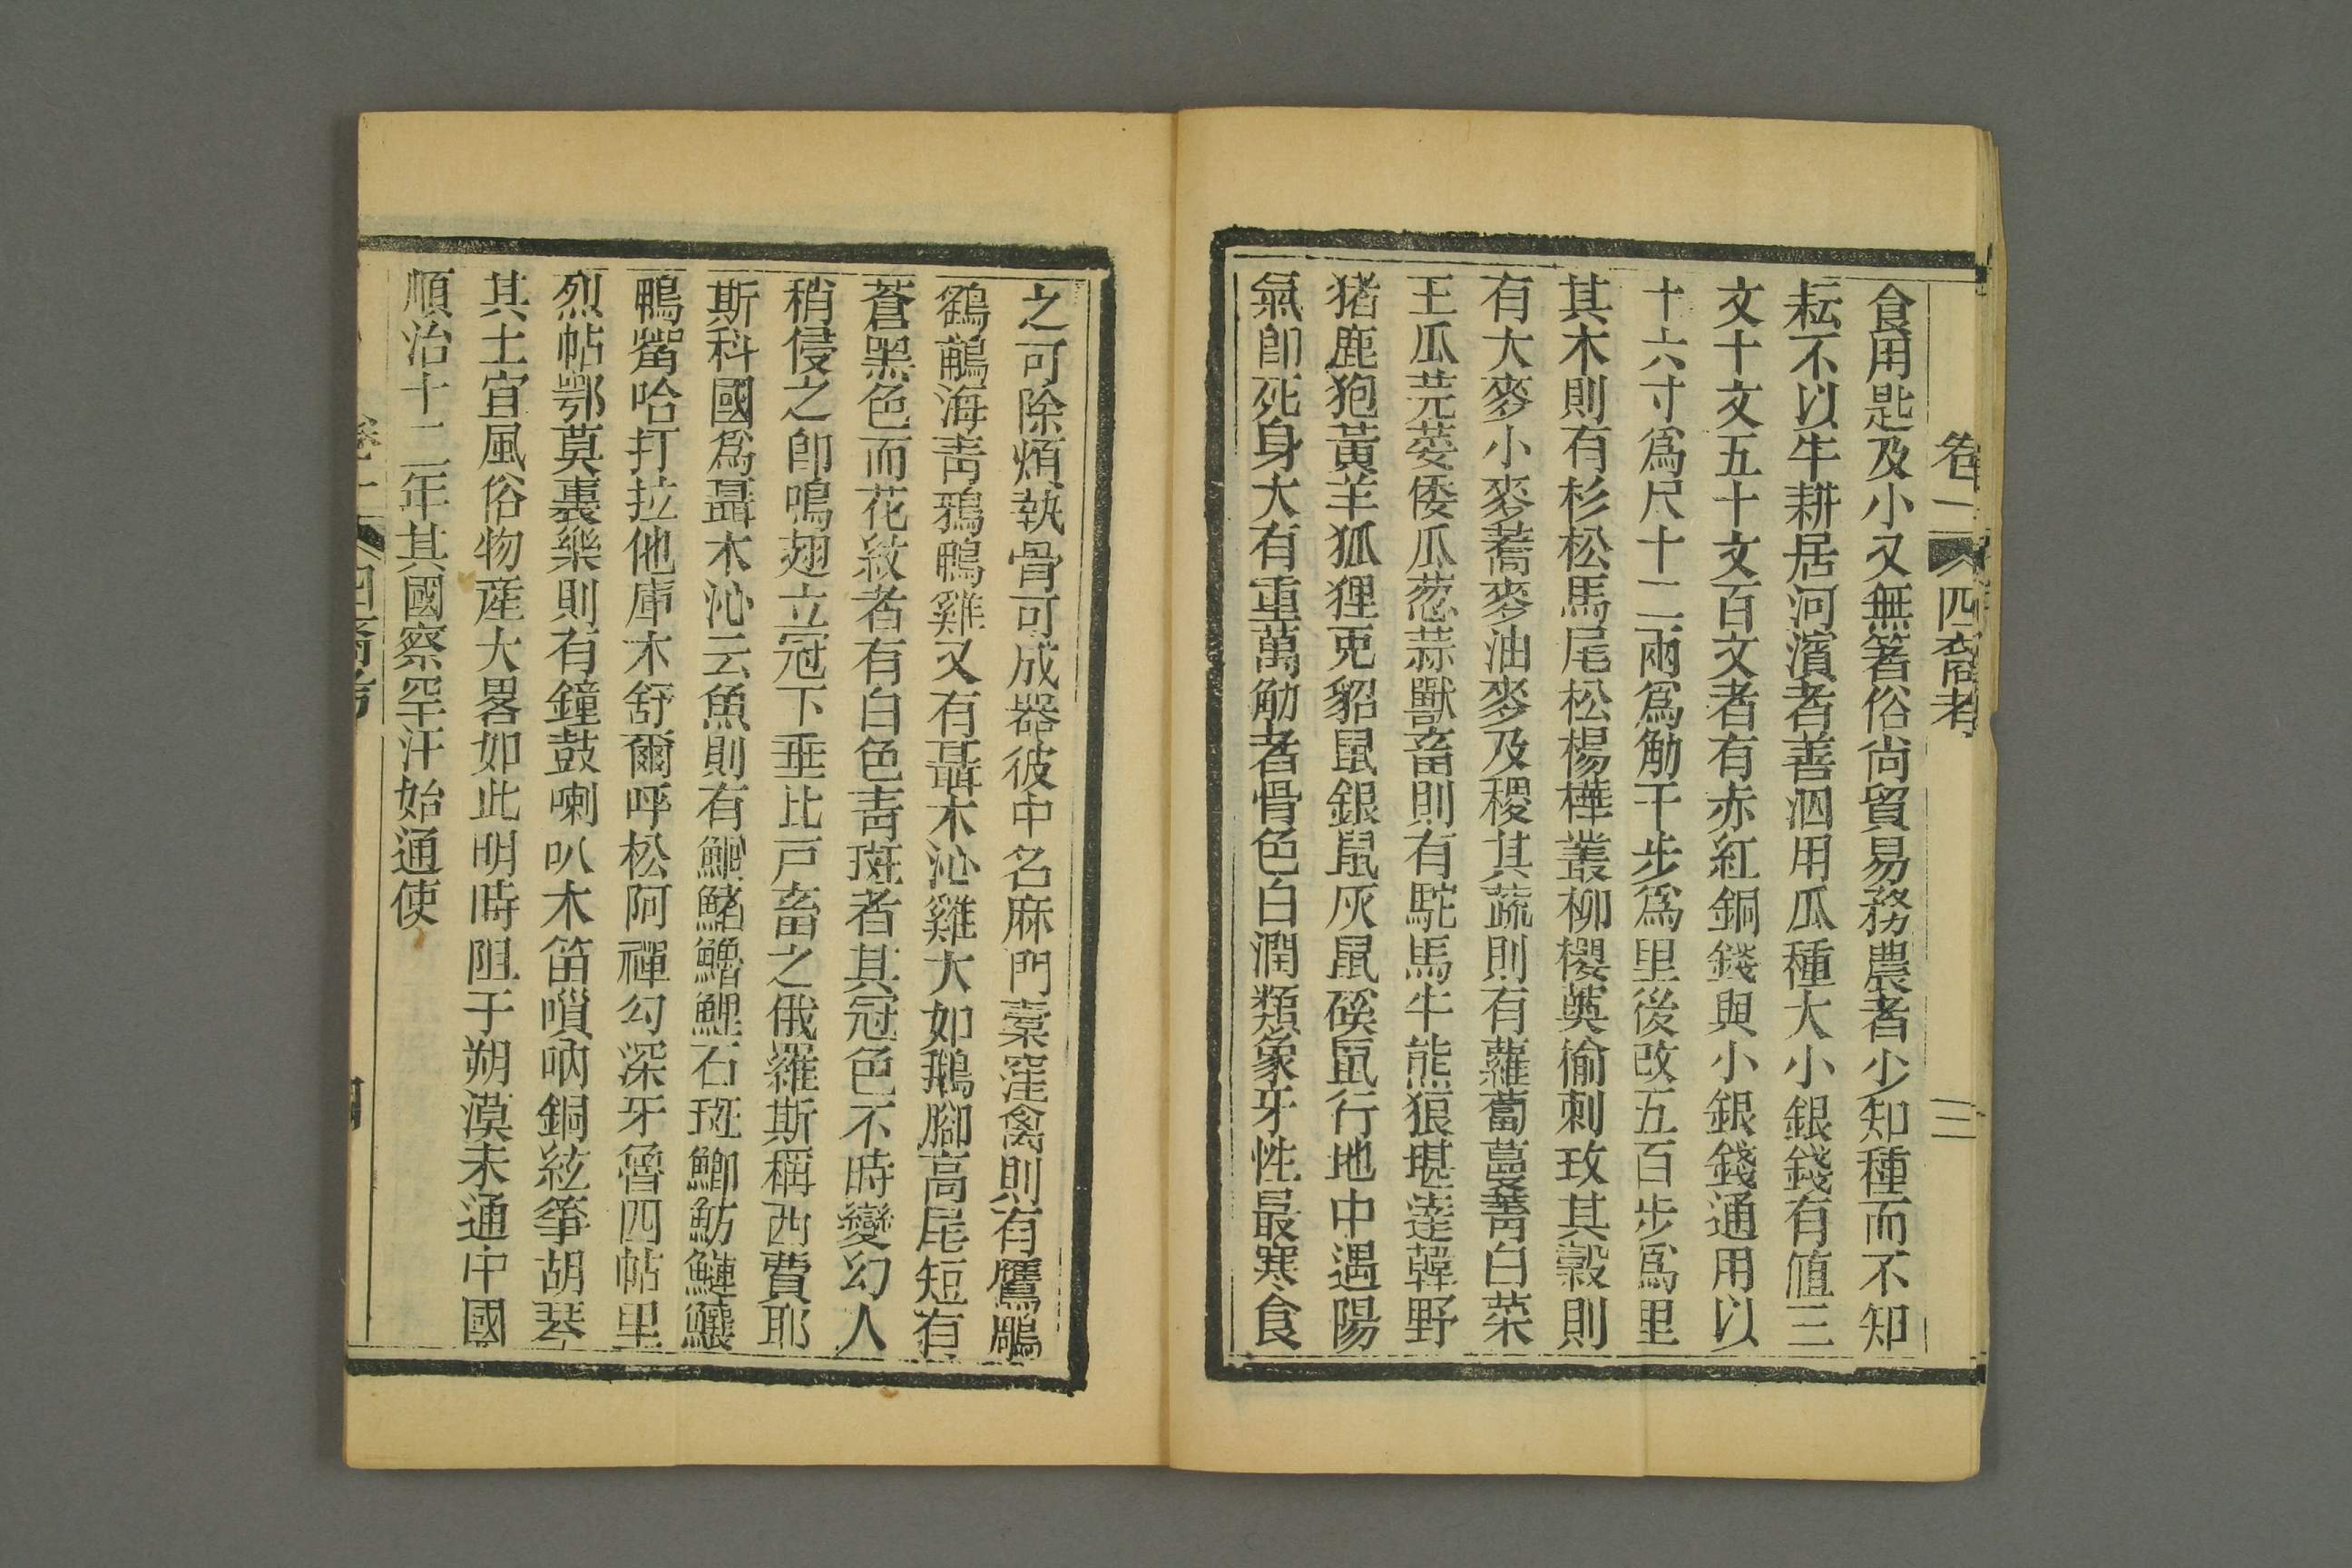 卷二 四裔考 三
食用匙及小叉無箸俗尚貿易務農者少知種而不知
耘不以牛耕居河濱者善泅用瓜種大小銀錢有値三
文十文五十文百文者有赤紅銅錢與小銀錢通用以
十六寸爲尺十二兩爲觔千步爲里後改五百步爲里
其木則有杉松馬尾松楊樺叢柳櫻薁榆刺玫其穀則
有大麥小麥蕎麥油麥及稷其蔬則有蘿蔔蔓菁白菜
王瓜芫荽倭瓜葱蒜獸畜則有駝馬牛熊狼堪達韓野
猪鹿狍黃羊狐狸兎貂鼠銀鼠灰鼠磎鼠行地中遇陽
氣卽死身大有重萬觔者骨色白潤類象牙性最寒食
之可除煩執骨可成器彼中名麻門橐窪禽則有鷹鵰
鶴鶓海靑鴉鴨雞又有聶木沁雞大如鵝腳高尾短有
蒼黑色而花紋者有白色靑斑者其冠色不時變幻人
稍侵之卽鳴翅立冠下垂比戸畜之俄羅斯稱西費耶
斯科國爲聶木沁云魚則有鯝鰭鱸鯉石斑鯽魴鰱鱤
鴨觜哈打拉他庫木舒爾呼松阿禪勾深牙魯四帖里
烈帖鄂莫裏樂則有鐘鼓喇叭木笛嗩吶銅絃箏胡琴
其土宜風俗物産大畧如此明時阻于朔漠未通中國
順治十二年其國察罕汗始通使
卷二 四裔考 四